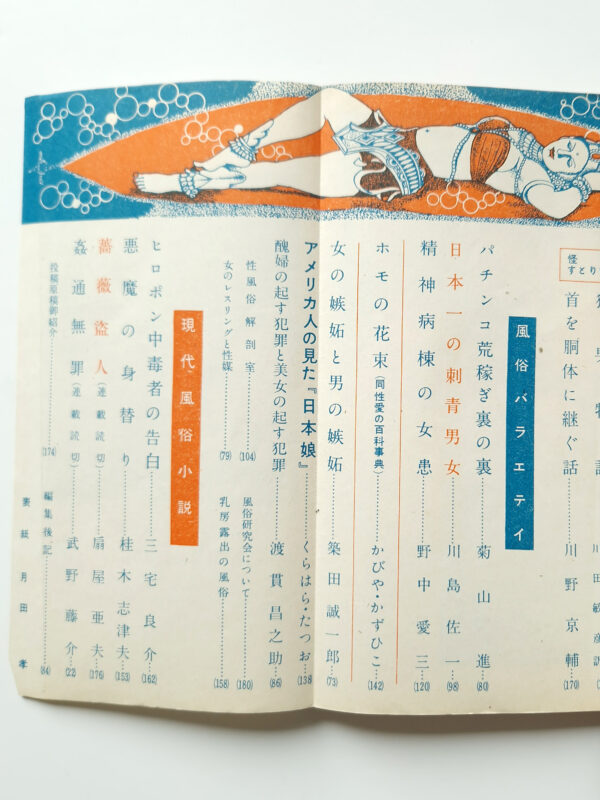 怪
すとりー
首を胴体に継ぐ話……川野京輔(170)
風俗バラエテイ
パチンコ荒稼ぎ裏の裏……菊山進(80)
日本一の刺青男女……川島佐一(98)
精神病棟の女患……野中愛三(120)
ホモの花束(同性愛の百科事典)……かびや・かずひこ(142)
女の嫉妬と男の嫉妬……築田誠一郎(73)
アメリカ人の見た『日本娘』……くらはら・たつお(138)
醜婦の起す犯罪と美女の起す犯罪……渡貫昌之助(86)
性風俗解剖室……(104) 風俗研究会について……(180)
女のレスリングと性媒……(79) 乳房露出の風俗……(158)
現代風俗小説
ヒロポン中毒者の告白……三宅良介(162)
悪魔の身替り……桂木志津夫(153)
薔薇盗人(連載読切)……扇屋亜夫(176)
姦通無罪(連載読切)……武野藤介(22)
投稿原稿御紹介……(174) 編集後記……(84)
表紙 月田孝